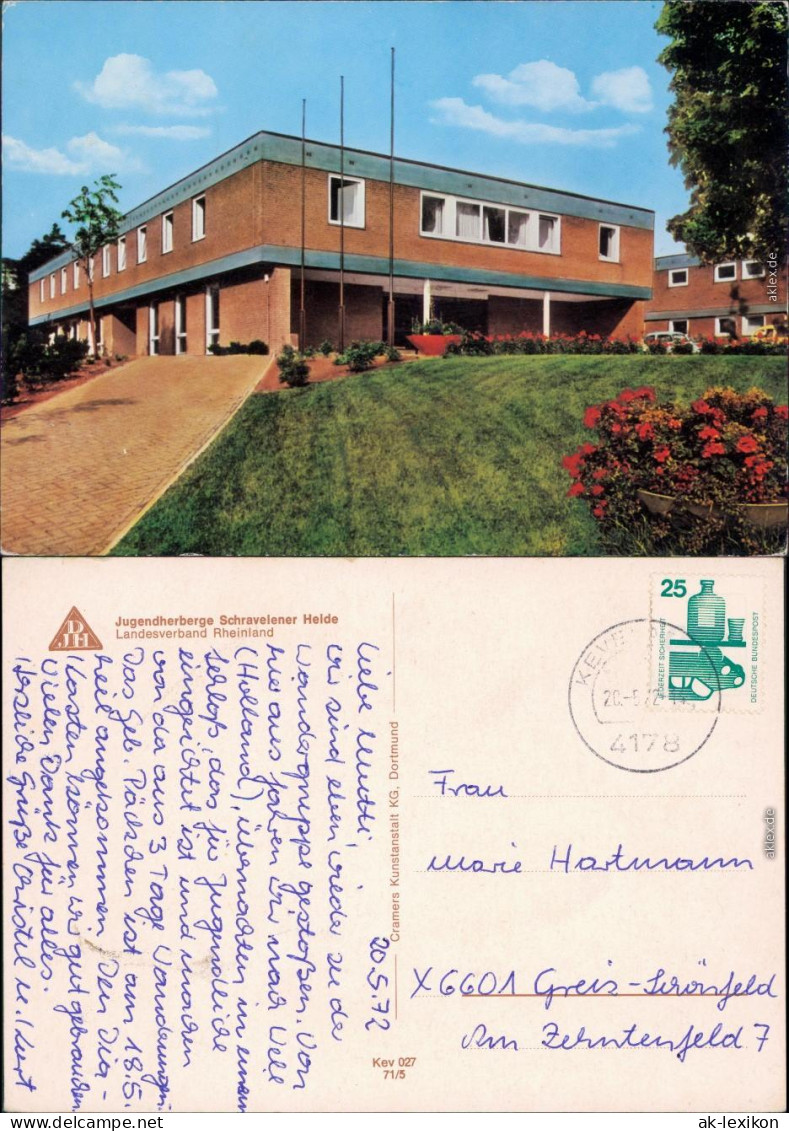 aklex.de
Jugendherberge Schravelener Heide
Landesverband Rheinland
DJH
20.5.72
Liebe Mutti!
Wir sind eben wieder zu der
Wandergruppe gestoßen. Von
hier aus fahren wir nach Well
(Holland), übernachten in einem
Schloß, das für Jugendliche
eingerichtet ist und machen
von da aus 3 Tage Wanderungen.
Das Geb. Päckchen ist am 18.5.
heil angekommen. Den Dia-
Kasten können wir gut gebrauchen.
Vielen Dank für alles.
Herzliche Grüße Christel u. Kurt
Cramers Kunstanstalt KG, Dortmund
Kev 027
71/5
25
JEDERZEIT SICHERHEIT
DEUTSCHE BUNDESPOST
KEVE
20.-5.72
4178
Frau
Marie Hartmann
X6601 Greiz-Schönfeld
Am Zehntenfeld 7
aklex.de
www.aklex.de
ak-lexikon